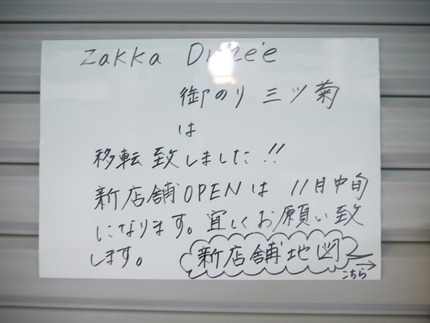 zakka
御のり 三ツ菊
は
移転致しました!!
新店舗OPENは 11月中旬
になります。宜しくお願い致
します。 新店舗地図
こちら